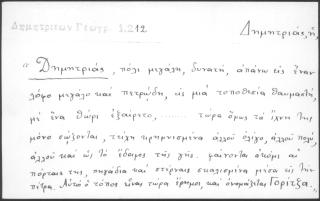 Δημητρίων Γεωγρ 1.212
Δημητριάς, ἡ,
" Δημητριάς, πόλι μεγάλη, δυνατή, ἀπάνω εἰς ἕναν
λόφο μεγάλο καὶ πετρώδη, εἰς μιὰ τοποθεσία θαυμαστή,
μὲ ἕνα θώρι ἐξαίρετο, ........ τώρα ὅμως τὰ ἴχνη της
μόνο σώζονται, τείχη κρημνισμένα ἀλλοῦ ὀλίγο, ἀλλοῦ πολύ,
ἀλλοῦ καὶ ὡς τὸ ἔδαφος τῆς γῆς. φαίνονται ἀκόμι αἱ
πόρταις της, πηγάδια καὶ στέρναις σκαλισμένα μέσα εἰς τὴν
πέτρα. Αὐτὸ ὁ τόπος εἶναι τώρα ἔρημος καὶ ὀνομάζεται Γορίτζα.."